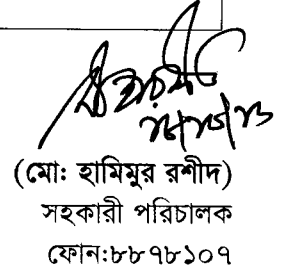 (মো: হামিমুর রশীদ)
সহকারী পরিচালক
ফোন:৮৮৭৮১০৭